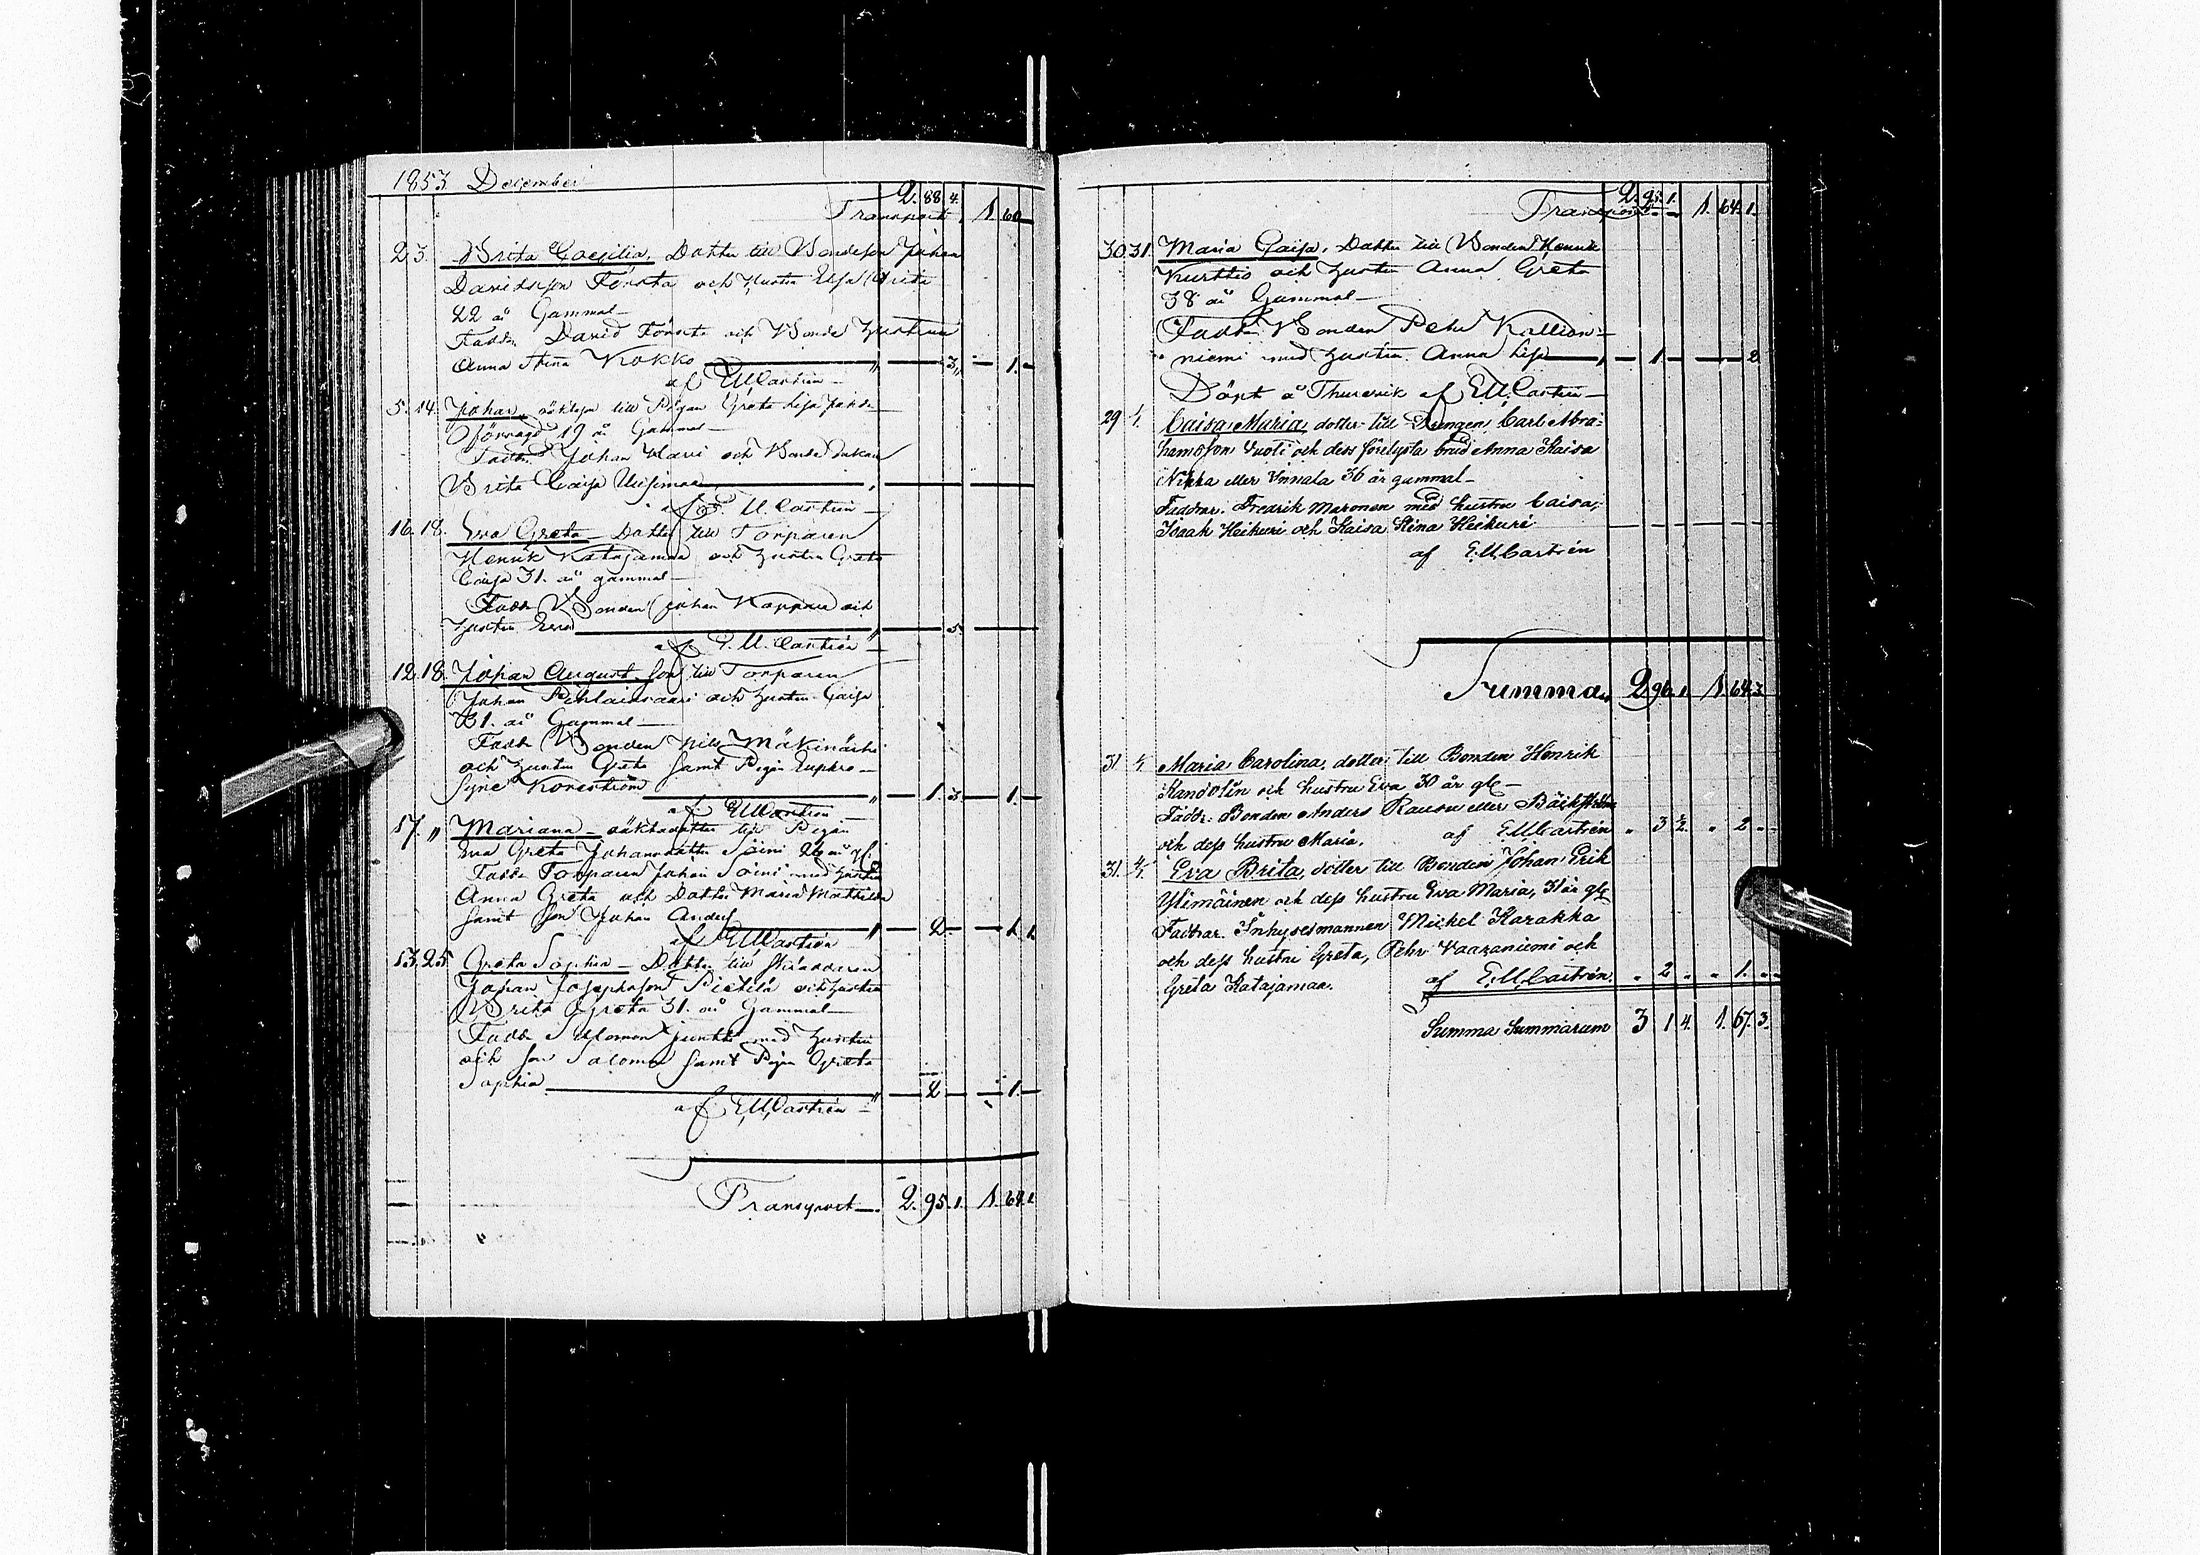 1853 December
2. 88. 4.
Transport 1. 60
2. 3. Brita Caecilia, Dotter till Bondeson Johan
Davidsson Törstä och hustru Elsa Brita
22 år Gammal
Fadd. David Törstä och Bonde hustrun
Anna Stina Kokko 3. 1.
af E U Castrén
5. 14. Johan, oäkta son till Pigan Greta Lisa Johs.
19 år Gammal
Faddr. Johan och Bonde
Brita Caisa
af E. U. Castrén
16. 18. Eva Greta Dotter till Torparen
Henrik Katajamaa och hustru Greta
Caisa 31. år gammal
Fadd Bonden Johan och
hustru Eva 5.
af E. U. Castrén
12. 18. Johan August. Son till Torparen
Johan Pihlaisvaari och hustru Caisa
31. år Gammal
Fadd Bonden Nils Mäkinärhi
och hustru Greta samt Pigan Euphro-
syne Kornström 1. 3. 1.
af E U Castrén
17. " Mariana oäkta dotter till Pigan
Eva Greta Johansdotter Soini 26 år gl.
Fadd Torparen Johan Soini med hustru
Anna Greta och Dotter Maria Mathilda
samt son Johan Anders 2. 1. 1.
af E U Castrén
13. 25. Greta Sophia Dotter till Skräddaren
Johan Josephsson Pietilä och hustru
Brita Greta 31. år Gammal
Fadd Salomon Junkki med hustru
och son Salomon samt Pigan Greta
Sophia 2 1.
af E. U. Castrén
Transport 2. 95. 1. 1. 64. 1.
Transport 2. 95. 1. 1. 64. 1.
30. 31. Maria Caisa, Dotter till Bonden Henrik
Kurttio och hustru Anna Greta
38 år Gammal
Faddr. Bonden Pehr Kallion-
niemi med hustru Anna Lisa 1 2
Döpt å Thurevik af E U Castrén
29 1/1 Caisa Maria, dotter till Drengen Carl Abra-
hamsson Vuoti och dess förelysta brud Anna Kaisa
Nikka eller Innala 36 år gammal
Faddrar. Fredrik Maronen med hustru Caisa,
Isaak Heikuri och Kaisa Stina Heikuri
af E. U. Castrén
Summa 2 96. 1. 1. 64. 3
31 1/1 Maria Carolina, dotter till Bonden Henrik
Kandolin och hustru Eva 30 år gl
Faddr. Bonden Anders Rausu eller Bäckström
och dess hustru Maria. af E U Castrén " 3 1/2 " 2 "
31. 4/1 Eva Brita, dotter till Bonden Johan Erik
Ylimäinen och dess hustru Eva Maria, 31 år gl
Faddrar. Inhysesmannen Mickel Karakka
och dess hustru Greta, Pehr Vaaraniemi och
Greta Katajamaa. af E. U. Castrén. " 2 " " 1. "
Summa Summarum 3 1 4. 1. 67. 3.